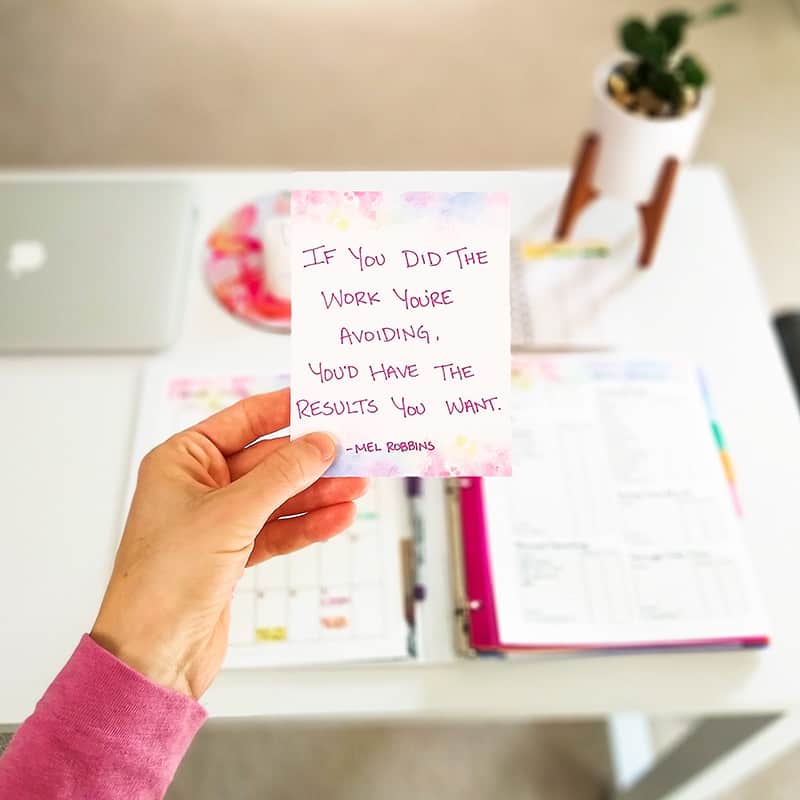 IF YOU DID THE
WORK YOU'RE
AVOIDING,
YOU'D HAVE THE
RESULTS YOU WANT.
-MEL ROBBINS